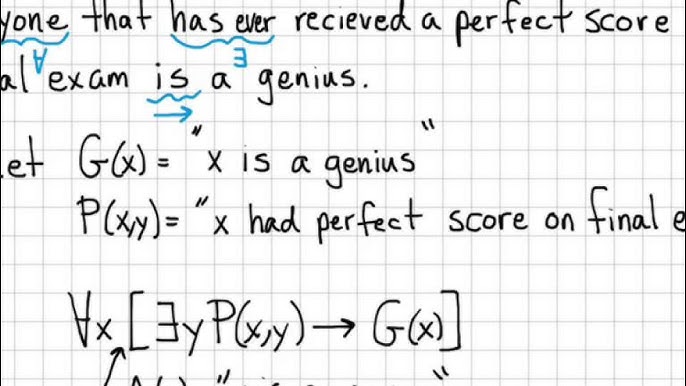 yone that has ever recieved a perfect score
∀ ∃
al exam is a genius.
→
et G(x) = "x is a genius"
P(x,y) = "x had perfect score on final e
∀x [∃y P(x,y) → G(x)]